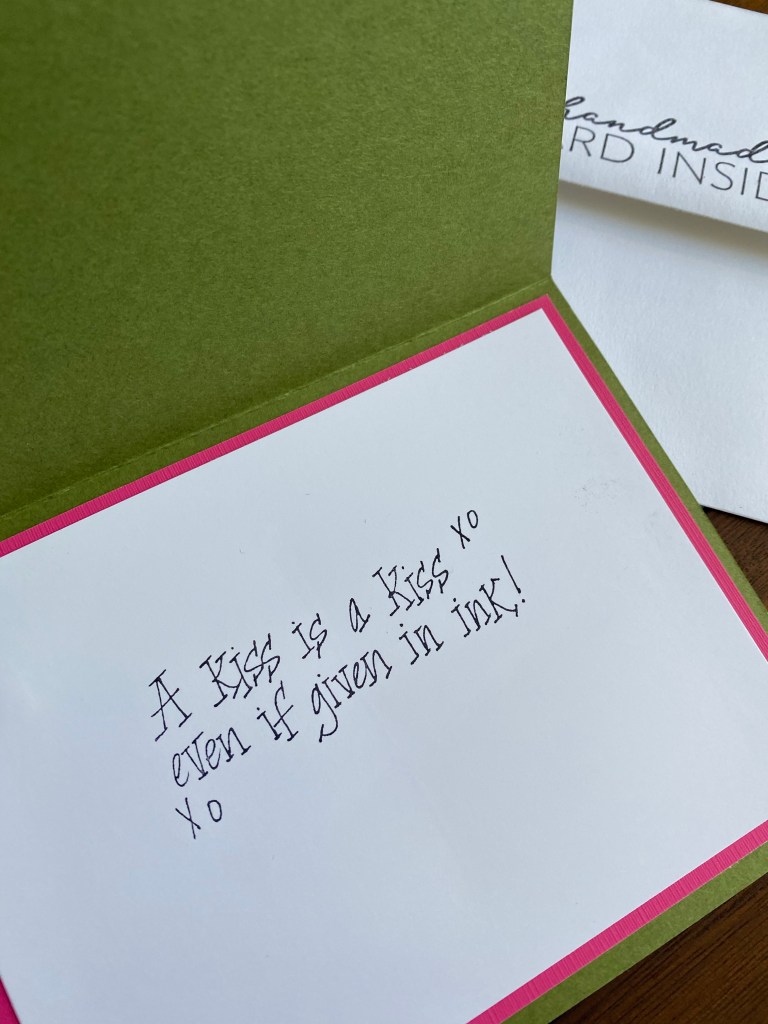 handmad
ARD INSID
A Kiss is a Kiss xo
even if given in ink!
xo